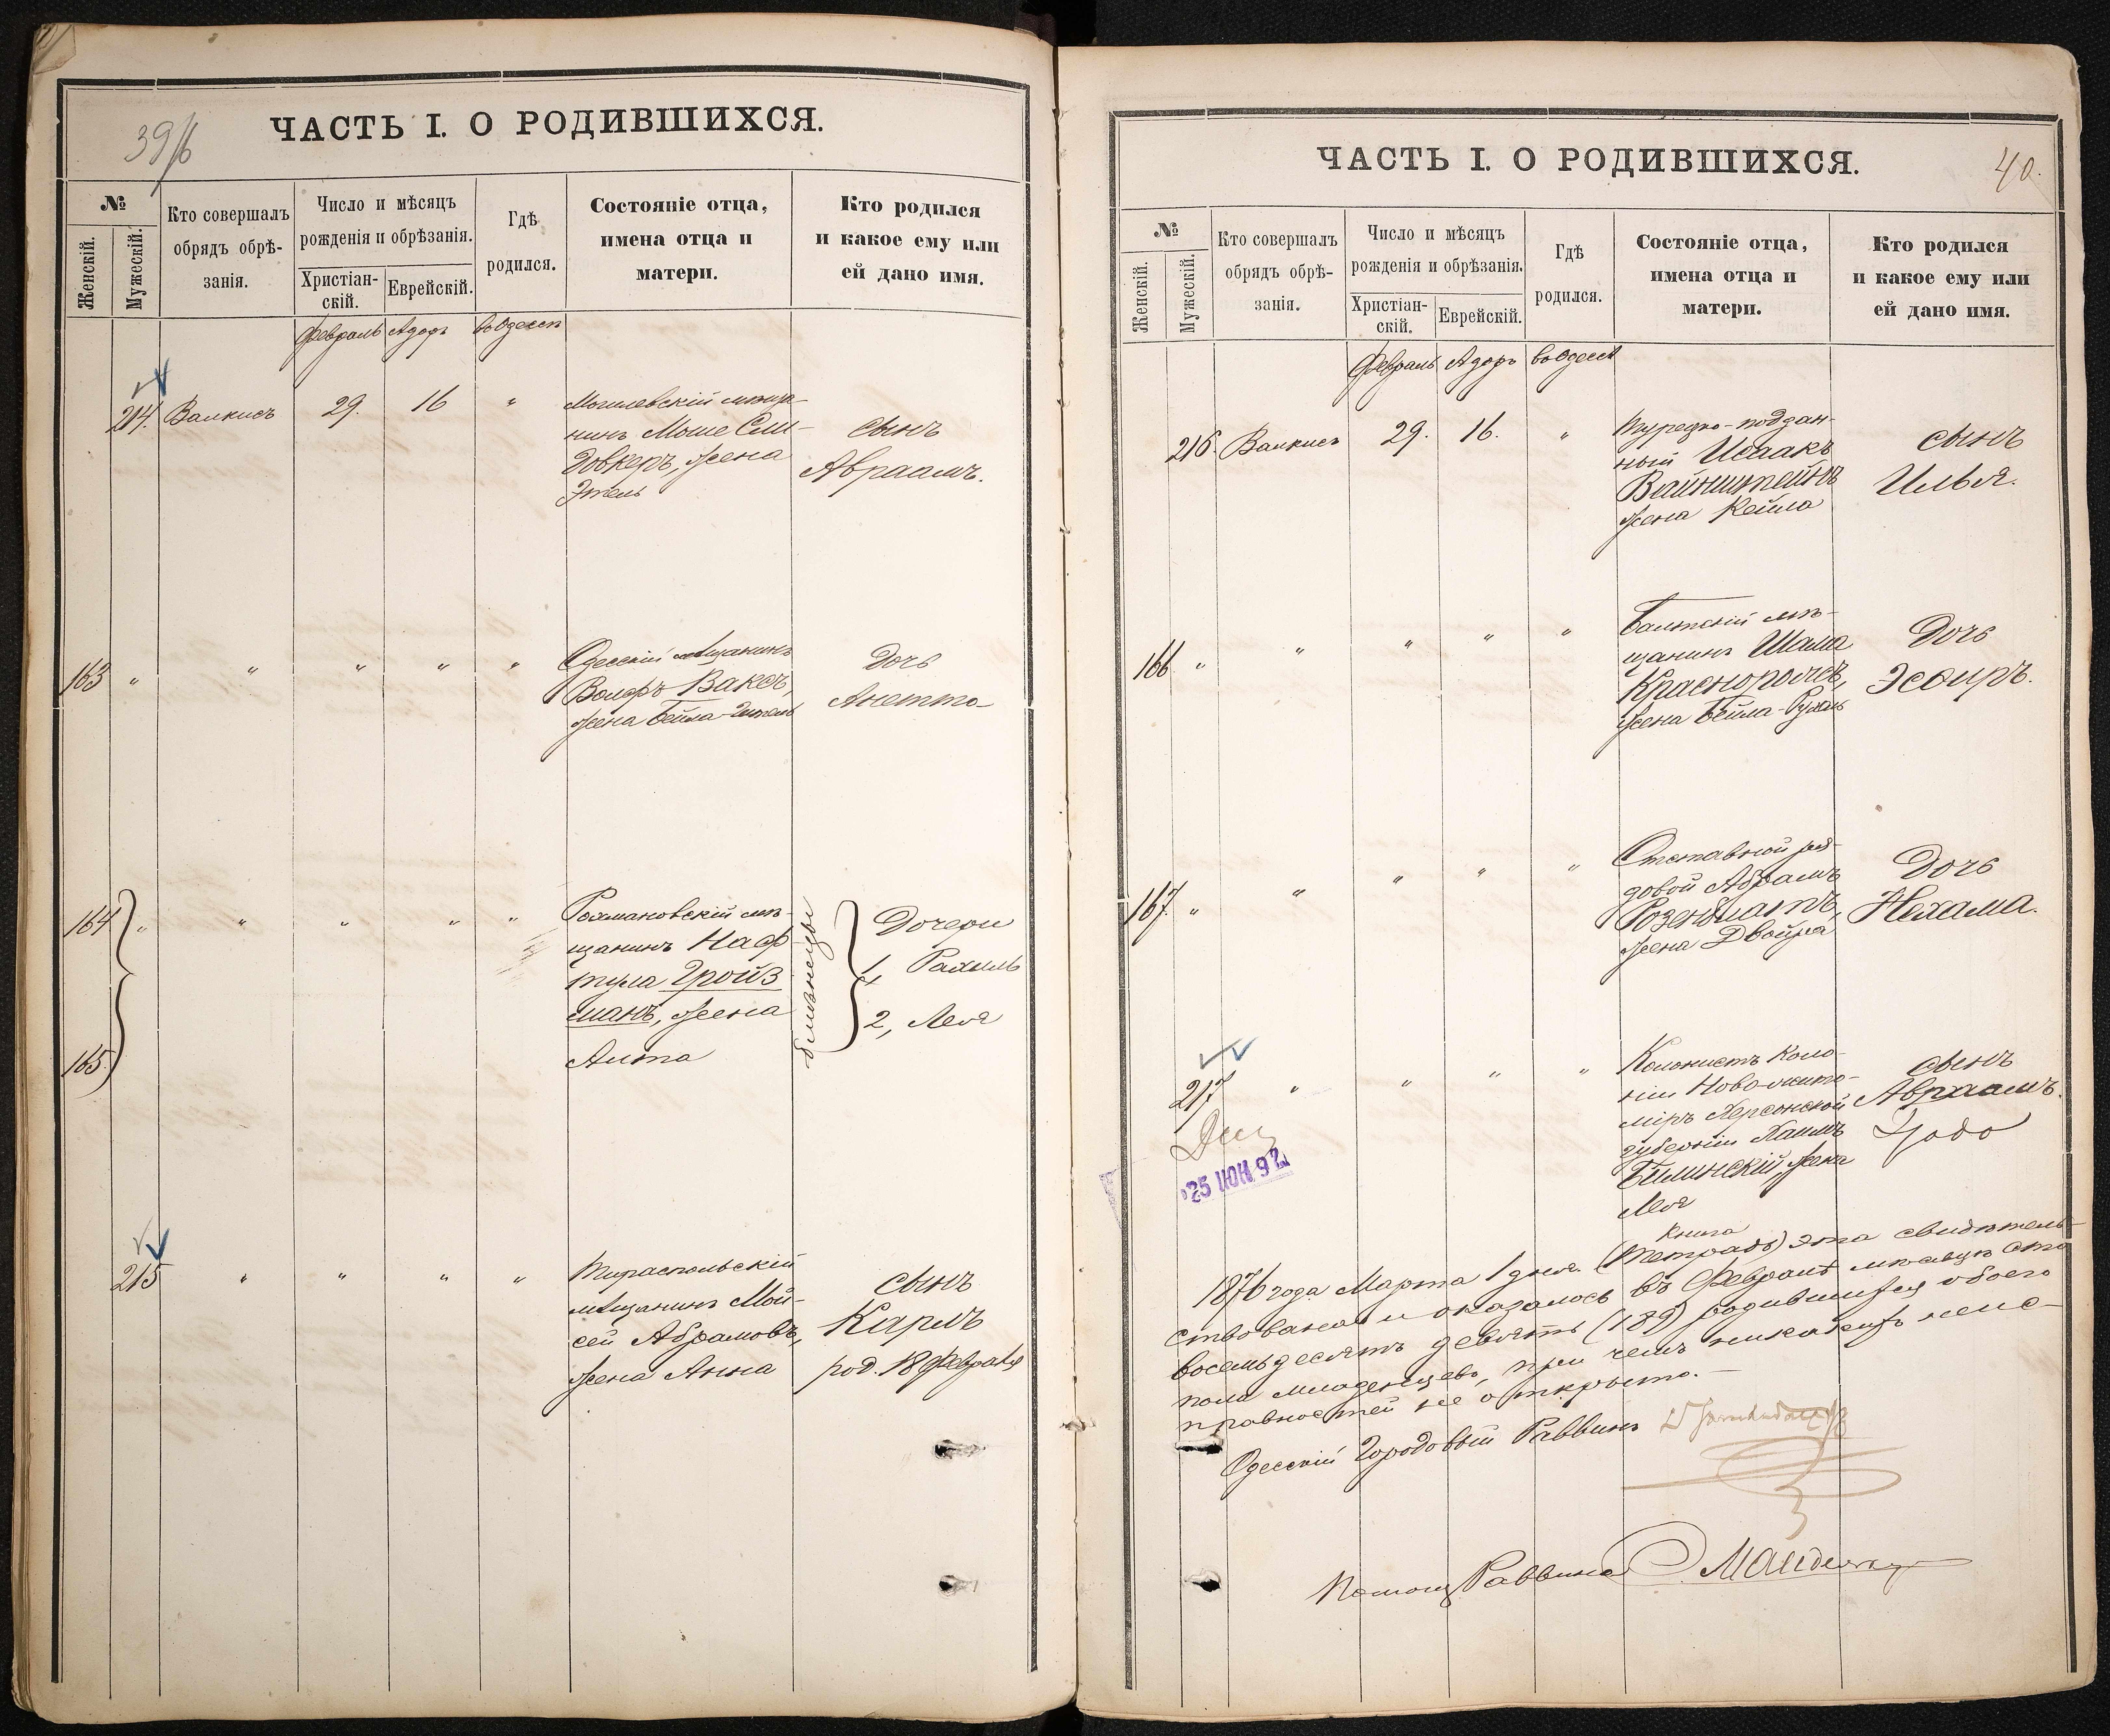 39/б
ЧАСТЬ I. О РОДИВШИХСЯ.
№
Женскій.
Мужескій.
Кто совершалъ
обрядъ обрѣ-
занія.
Число и мѣсяцъ
рожденія и обрѣзанія.
Христіан-
скій.
Еврейскій.
Гдѣ
родился.
Состояніе отца,
имена отца и
матери.
Кто родился
и какое ему или
ей дано имя.
Февраль Адаръ въ Одессѣ
214. Валкисъ 29. 16 "
Могилевскій мѣща-
нинъ Моше Сли-
довкеръ, жена
Этель
сынъ
Авраамъ.
163 " " " " "
Одесскій мѣщанинъ
Вольфъ Ваксъ,
жена Бейла-Гитель
Дочь
Анетта
164 " " " " "
165
Рахмановскій мѣ-
щанинъ Наф-
тула Гройз
манъ, жена
Алта
близнецы
Дочери
1, Рахиль
2, Лея
215 " " " "
Тираспольскій
мѣщанинъ Мой-
сей Абрамовъ,
жена Анна
сынъ
Карлъ
род. 18 Февраля
40.
ЧАСТЬ I. О РОДИВШИХСЯ.
№
Женскій.
Мужескій.
Кто совершалъ
обрядъ обрѣ-
занія.
Число и мѣсяцъ
рожденія и обрѣзанія.
Христіан-
скій.
Еврейскій.
Гдѣ
родился.
Состояніе отца,
имена отца и
матери.
Кто родился
и какое ему или
ей дано имя.
Февраль Адаръ въ Одессѣ
216. Валкисъ 29. 16. "
Турецко-поддан-
ный Исаакъ
Вайнштейнъ
жена Кейла
сынъ
Илья.
166 " " " " "
Балтскій мѣ-
щанинъ Шама
Краснополсъ,
жена Бейла-Рухль
Дочь
Эсѳиръ.
167. " " " " "
Отставной ря-
довой Абрамъ
Розенблатъ,
жена Двойра
Дочь
Нехама.
217 " " " "
25 ИЮН 92
Колонистъ коло-
ніи Ново-жито-
міръ Херсонской
губерніи Хаимъ
Билинскій, жена
Лея
сынъ
Авраамъ.
Книга
1876 года Марта 1 дня. (Тетрадь) эта свидѣтель-
ствована и оказалось въ Февралѣ мѣсяцѣ сто
восемьдесятъ девять (189) родившихся обоего
пола младенцевъ, при чемъ никакихъ неис-
правностей не открыто.
Одесскій Городовый Раввинъ
Помощ Раввина